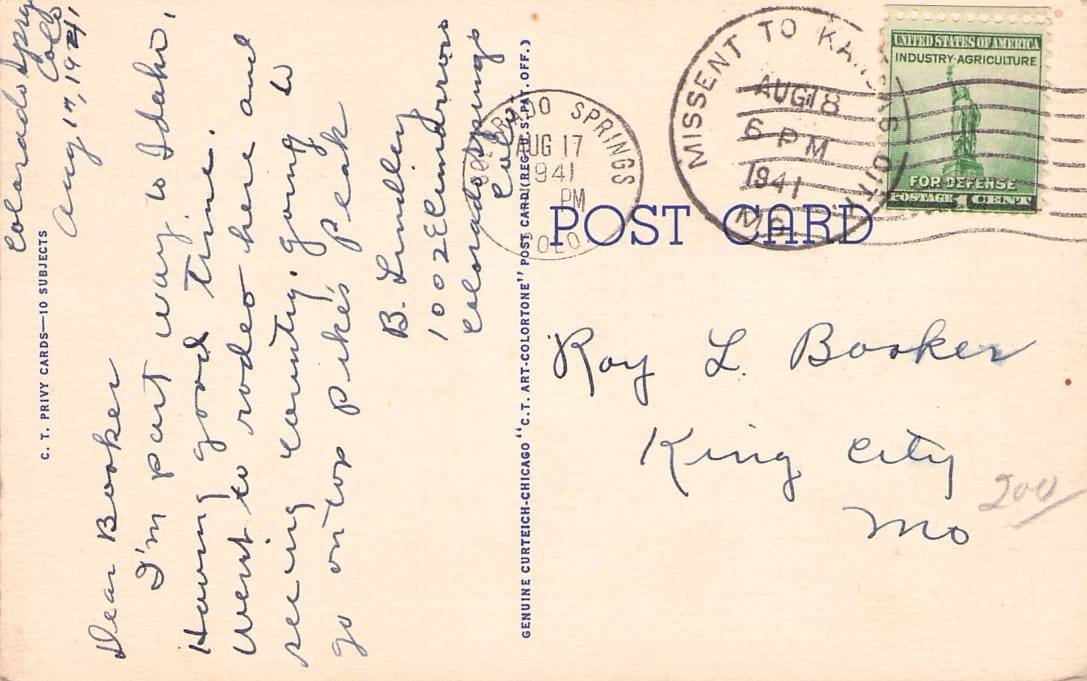 Colorado Spgs
Colo
Aug 17, 1941
Dear Booker
I'm part way to Idaho,
Having good time.
Went to rodeo here and
seeing country. going to
go on top Pike's Peak
B. Lumlley
1002 E Cimarron
Colorado Springs
Colo
C. T. PRIVY CARDS—10 SUBJECTS
GENUINE CURTEICH-CHICAGO "C.T. ART-COLORTONE" POST CARD (REG. U.S. PAT. OFF.)
COLORADO SPRINGS
AUG 17
1941
PM
COLO.
MISSENT TO KANSAS CITY
AUG 18
6 PM
1941
MO.
UNITED STATES OF AMERICA
INDUSTRY·AGRICULTURE
FOR DEFENSE
POSTAGE 1 CENT
POST CARD
Roy L. Booker
King City
Mo
200